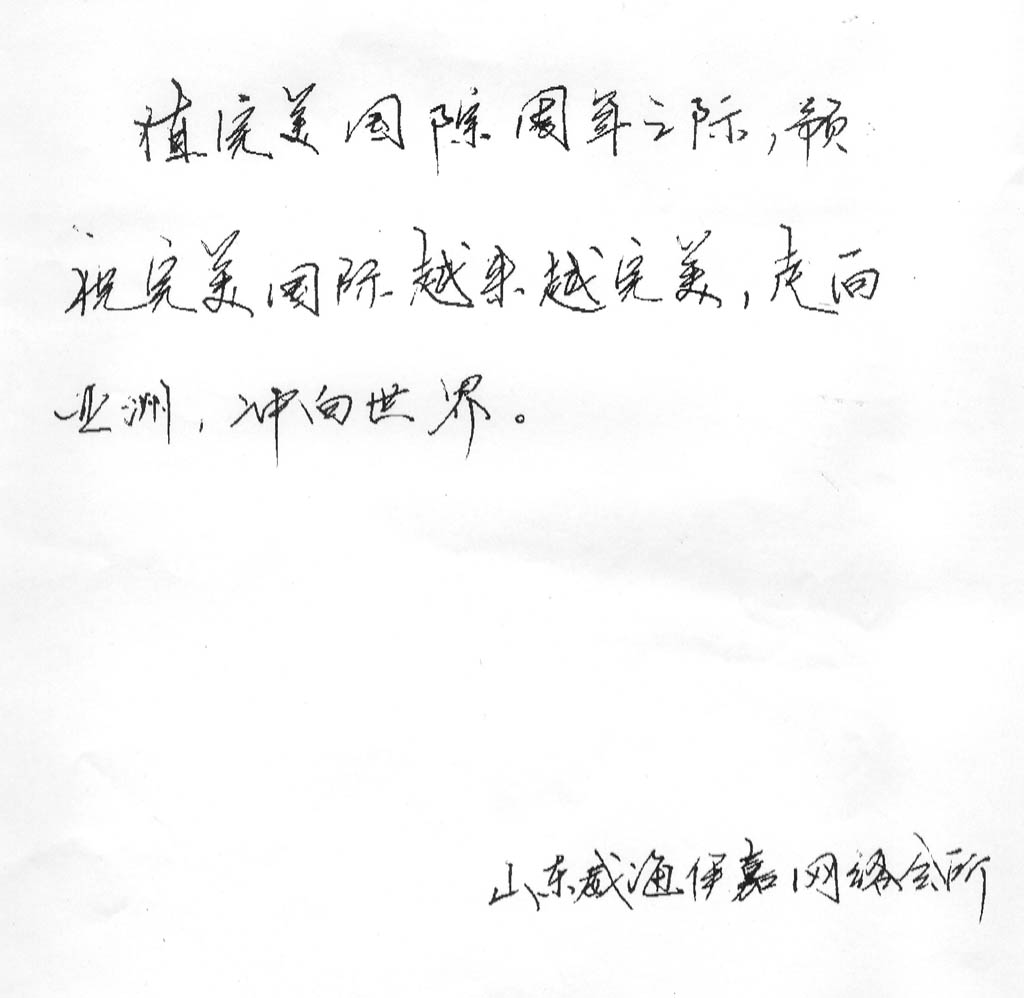 植完美国际周年之际,预
祝完美国际越来越完美,走向
亚洲,冲向世界。
山东威海伊嘉网络会所